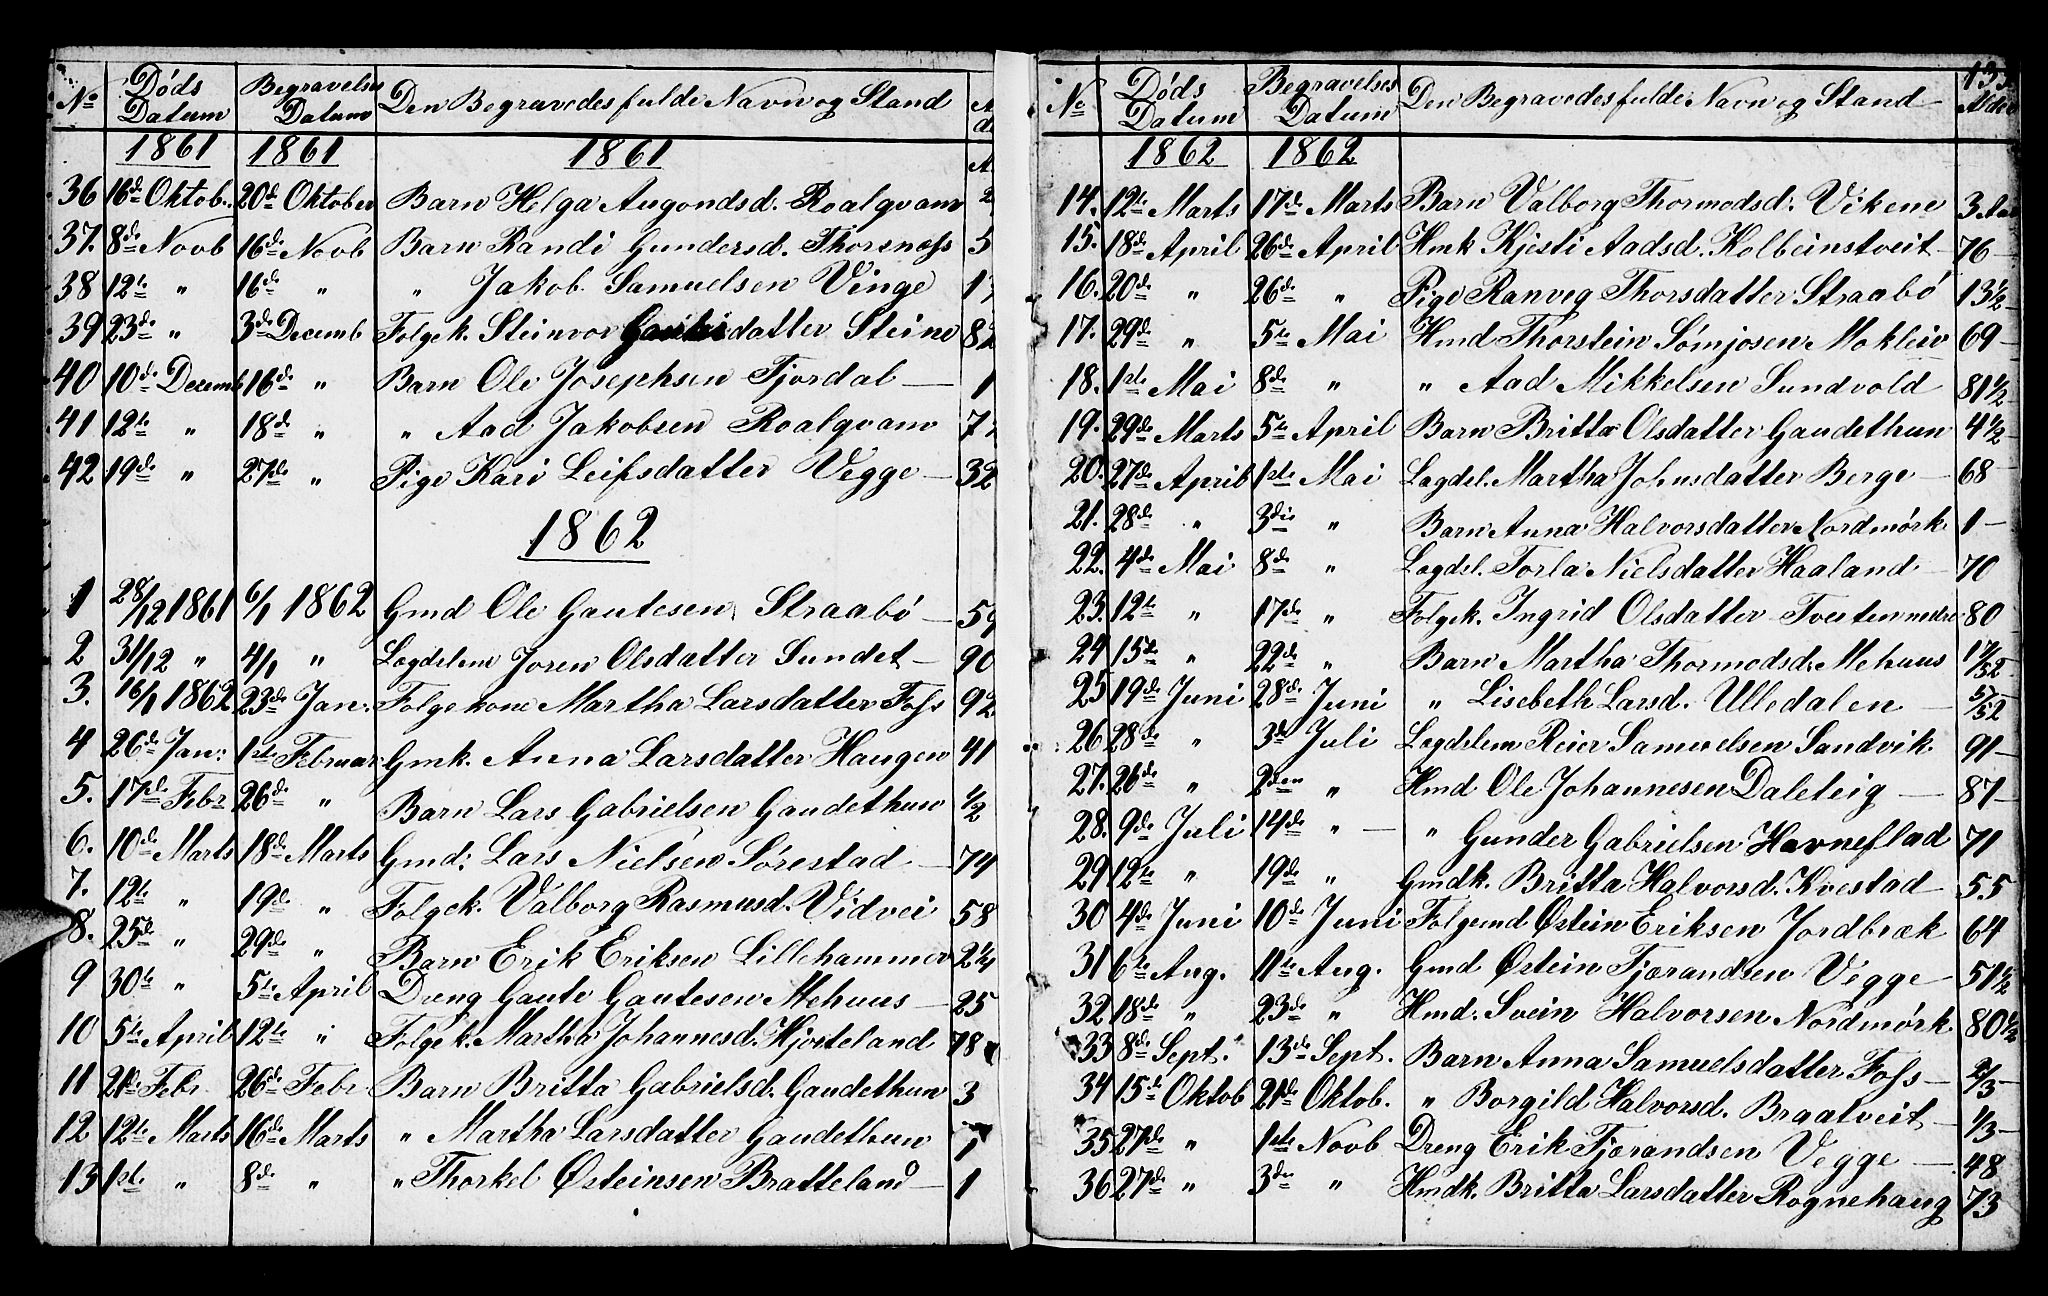 No Døds Datum Begravelses Datum Den Begravedes fulde Navn og Stand
1861 1861 1861
36 16de Oktob. 20de Oktober Barn Helga Augondsd. Roalqvam 2
37. 8de Novb 16de Novb Barn Randi Gundersd. Thorsnæss 5
38 12te " 16de " " Jakob Samuelsen Vinge 1
39 23de " 3de Decemb Folgek. Steinvor datter Steine 82
40 10de Decemb 16de " Barn Ole Josephsen Fjordal — 1
41 12te " 18de " " Aad Jakobsen Roalqvam 7
42 19de " 27de " Pige Kari Leifsdatter Vegge — 32
1862
1 28/12 1861 6/1 1862 Gmd Ole Gautesen Straabø — 59
2 31/12 " 4/1 " Lægdslem Joren Olsdatter Sundet — 90
3. 16/1 1862 23de Jan. Folgekone Martha Larsdatter Foss 92
4 26de Jan: 1ste Februar Gmk. Anna Larsdatter Haugen 41
5. 17de Febr 26de " Barn Lars Gabrielsen Gaudethun 1/2
6. 10de Marts 18de Marts Gmd: Lars Nielsen Sørestad — 74
7. 12te " 19de " Folgek. Valborg Rasmusd. Vidvei 58
8. 25de " 29de " Barn Erik Eriksen Lillehammer 2 1/4
9 30te " 5te April Dreng Gaute Gautesen Mehuus — 25
10 5te April 12te " Folgek. Martha Johannesd. Hjorteland 78
11 21de Febr 26de Febr Barn Britta Gabrielsd. Gaudethun 3
12 12te Marts 16de Marts " Martha Larsdatter Gaudethun 1
13 1ste " 8de " " Thorkel Østeinsen Bratteland — 1
133
No Døds Datum Begravelses Datum Den Begravedes fulde Navn og Stand Alder
1862 1862
14. 12te Marts 17de Marts Barn Valborg Thormodsd. Vikene 3
15. 18de April 26de April Hmk Kjesti Aadsd. Kolbeinstveit — 76 —
16. 20de " 26de " Pige Ranveg Thorsdatter Straabø 13 1/2
17. 29de " 5te Mai Hmd Thorstein Sømjosen Mokleiv 69 —
18. 1ste Mai 8de " " Aad Mikkelsen Sundvold 81 1/2
19. 29de Marts 5te April Barn Britta Olsdatter Gaudethun 4 1/2
20. 27de April 1ste Mai Lægdsl. Martha Johnsdatter Berge — 68
21. 28de " 3die " Barn Anna Halvorsdatter Nordmørk 1 —
22. 4de Mai 8de " Lægdsl. Torla Nielsdatter Haaland — 70
23. 12te " 17de " Folgek. Ingrid Olsdatter Tveiten nedre 80
24 15de " 22de " Barn Martha Thormodsd. Mehuus 17/52
25 19de Juni 28de Juni " Lisebeth Larsd. Ulledalen — 5/52
26 28de " 3de Juli Lægdslem Reier Samuelsen Sandvik 91 —
27. 26de " 2den " Hmd Ole Johannesen Daleteig — 87 —
28. 9de Juli 14de " — " Gunder Gabrielsen Havneflad 71
29 12te " 19de " Gmdk. Britta Halvorsd. Kvestad — 55
30 4de Juni 10de Juni Folgemd Østein Eriksen Jordbræk 64
31 6te Aug. 11te Aug. Gmd Østein Fjærandsen Vegge — 51 1/2
32 18de " 23de " Hmd. Svein Halvorsen Nordmørk 80 1/2
33 8de Sept. 13de Sept. Barn Anna Samuelsdatter Foss — 2/3 —
34 15de Oktob 21de Oktob. " Borgild Halvorsd. Braatveit — 1/3 —
35 27de " 1ste Novb Dreng Erik Fjærandsen Vegge — 48
36 27de " 3die " Hmdk. Britta Larsdatter Rognehaug 73